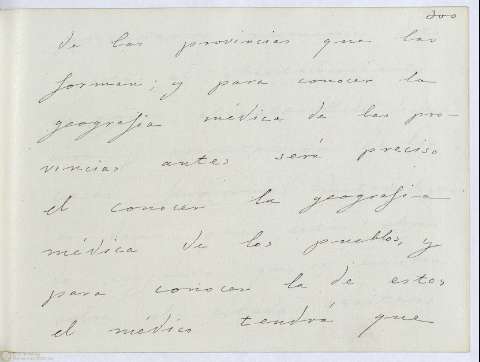 dos
de las provincias que las
forman; y para conocer la
geografia médica de las pro-
vincias antes será preciso
el conocer la geografia
médica de los pueblos, y
para conocer la de estos
el médico tendrá que